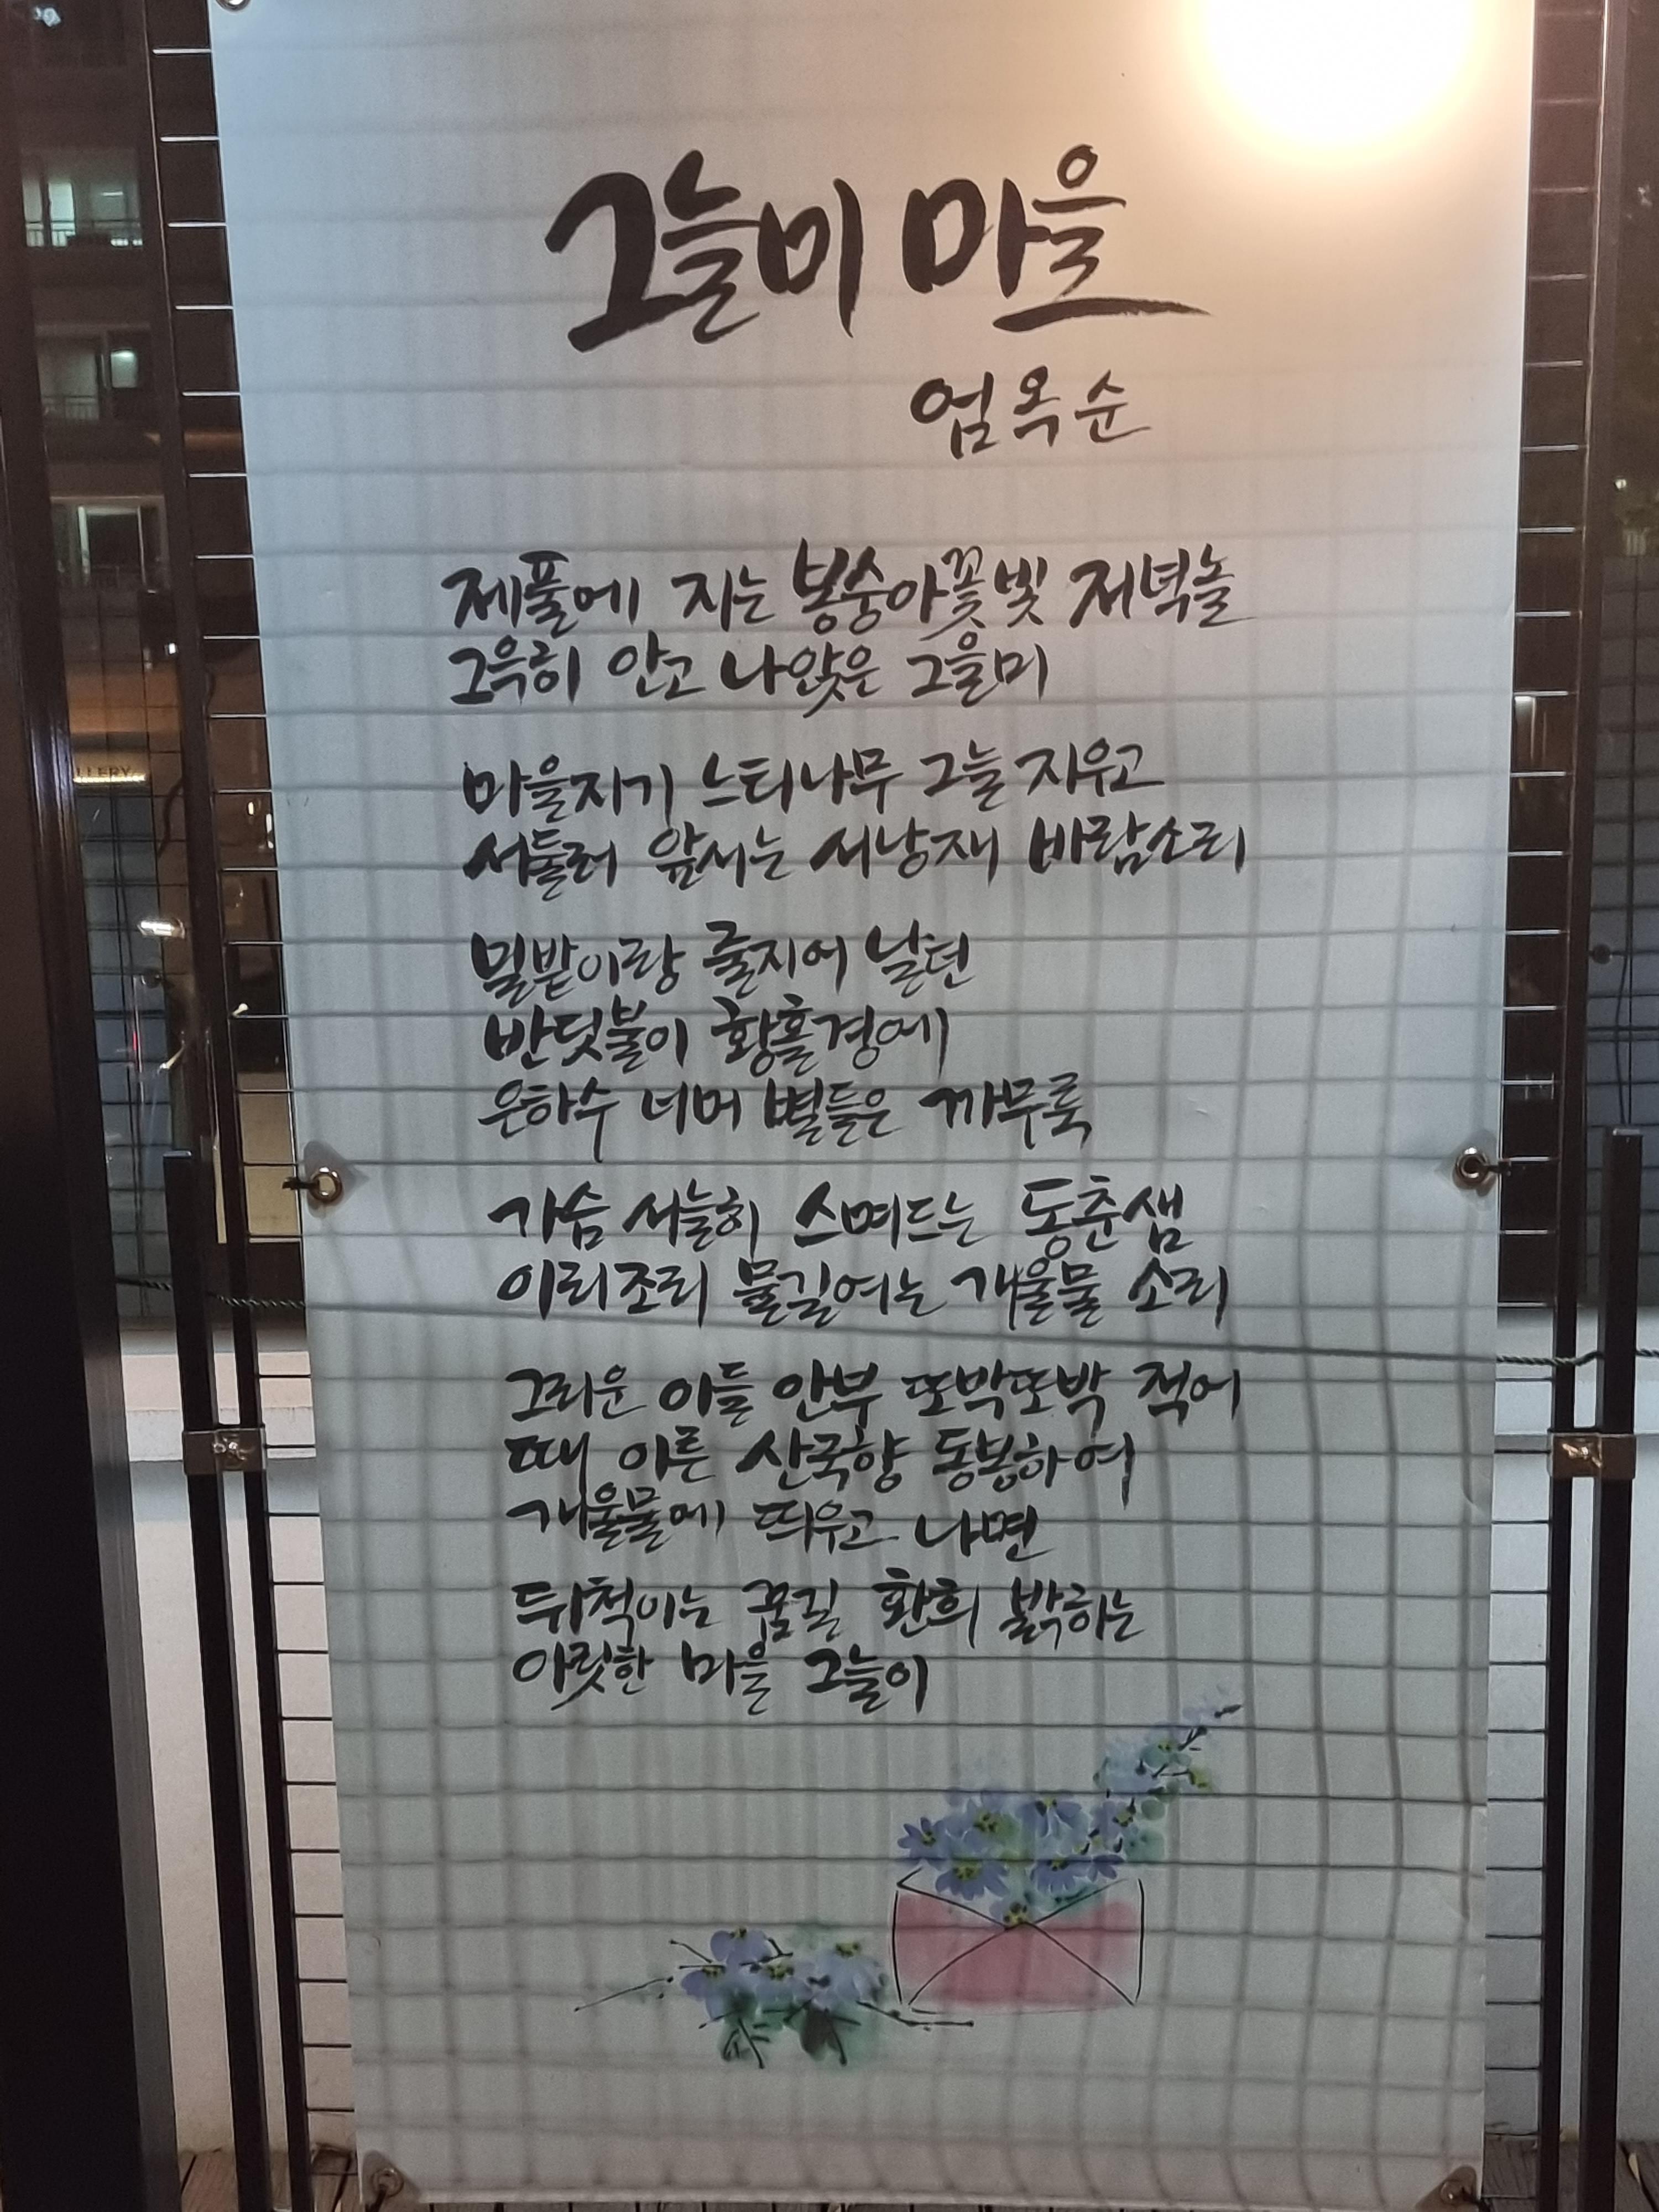 그늘미 마을
엄옥순
제풀에 지는 봉숭아꽃빛 저녁놀
그윽히 안고 나앉은 그을미
마을지기 느티나무 그늘 지우고
서둘러 앞서는 서낭재 바람소리
밀밭이랑 줄지어 날던
반딧불이 황홀경에
은하수 너머 별들은 까무룩
가슴 서늘히 스며드는 동춘샘
이리조리 물길여는 개울물 소리
그리운 이들 안부 또박또박 적어
때 이른 산국향 동봉하여
개울물에 띄우고 나면
뒤척이는 꿈길 환희 밝히는
아릿한 마을 그늘이
LLERY